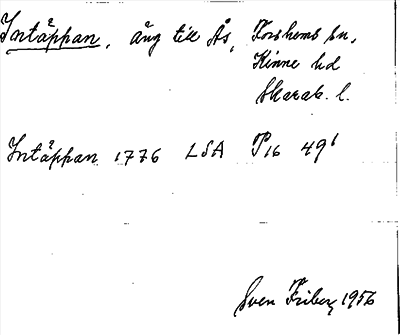 Intäppan, äng till Ås, Forshems sn,
Kinne hd
Skarab. l.
Intäppan 1776 LSA P16 49¹
Sven Friberg 1956